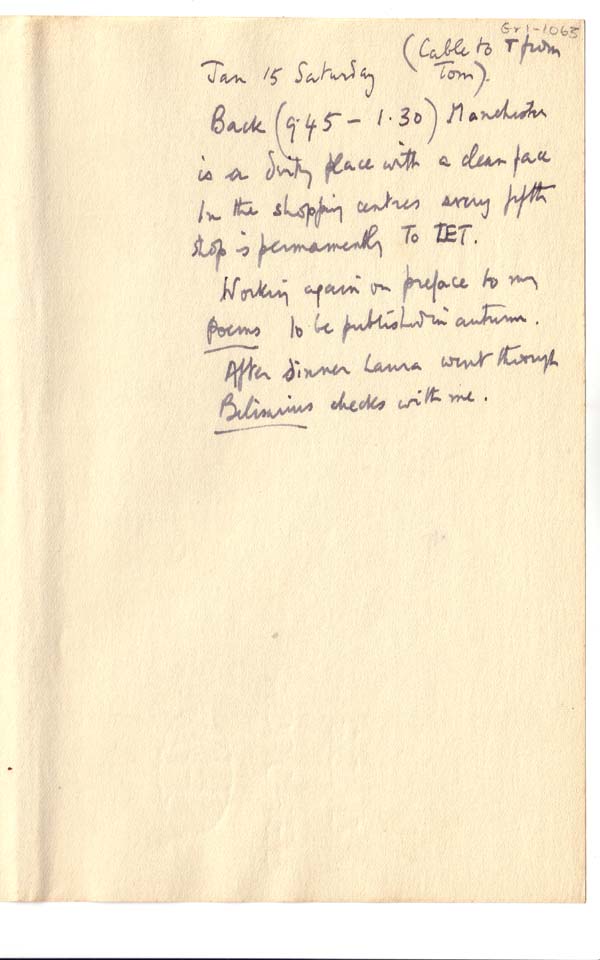 Gr1-1063
(Cable to T from
Jan 15 Saturday Tom).
Back (9.45 – 1.30) Manchester
is a dirty place with a clean face
In the shopping centres every fifth
shop is permamently TO LET.
Working again on preface to my
Poems to be published in autumn.
After dinner Laura went through
Belisarius checks with me.